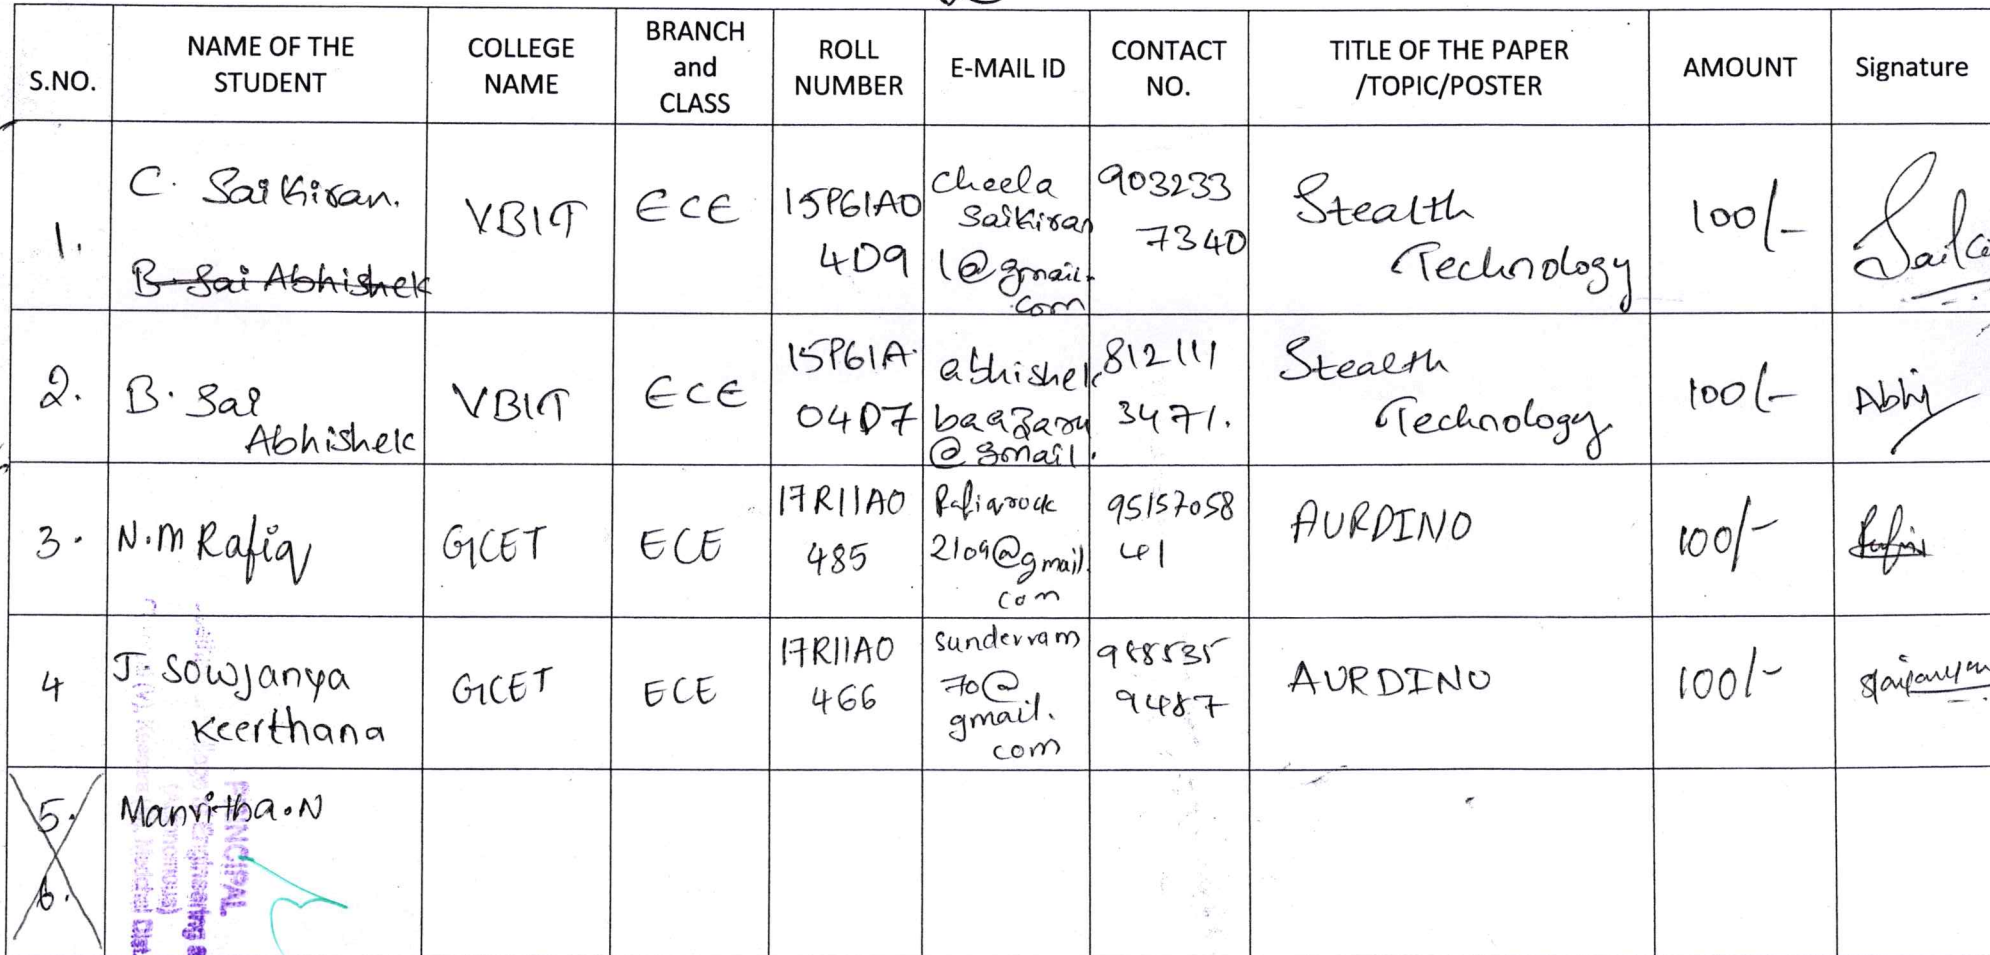 S.NO.
NAME OF THE
STUDENT
COLLEGE
NAME
BRANCH
and
CLASS
ROLL
NUMBER
E-MAIL ID
CONTACT
NO.
TITLE OF THE PAPER
/TOPIC/POSTER
AMOUNT
Signature
1.
C. Saikiran.
B. Sai Abhishek
VBIT
ECE
15P61A0
4D9
cheela
Saikiran
1@gmail.
com
903233
7340
Stealth
Technology
100/-
2.
B. Sai
Abhishek
VBIT
ECE
15P61A
04D7
abhishek
@gmail.
812111
3471.
Stealth
Technology
100/-
Abhi
3.
N.M Rafiq
GCET
ECE
17R11A0
485
Rafiqrock
2109@gmail.
com
95157058
41
AURDINO
100/-
4
J. Sowjanya
Keerthana
GCET
ECE
17R11A0
466
sunderram
70@
gmail.
com
988535
9487
AURDINO
100/-
5.
Manvitha.N
6.
PRINCIPAL